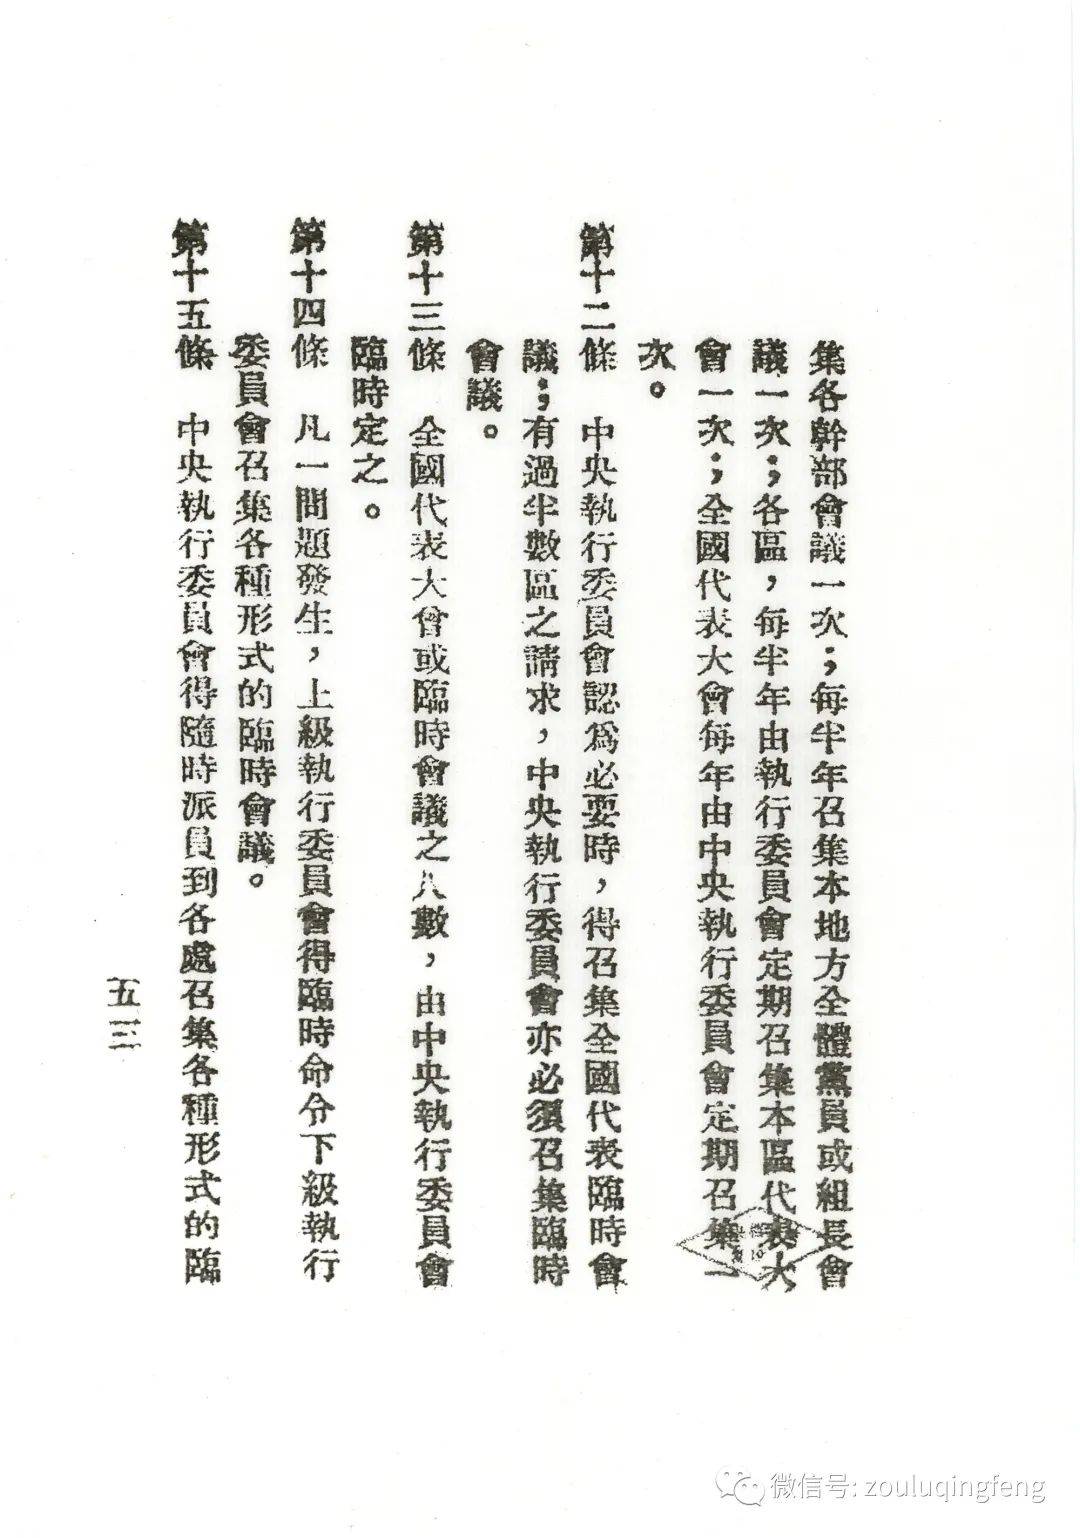 集各幹部會議一次；每半年召集本地方全體黨員或組長會
議一次；各區，每半年由執行委員會定期召集本區代表大
會一次；全國代表大會每年由中央執行委員會定期召集一
次。
第十二條　中央執行委員會認爲必要時，得召集全國代表臨時會
議；有過半數區之請求，中央執行委員會亦必須召集臨時
會議。
第十三條　全國代表大會或臨時會議之人數，由中央執行委員會
臨時定之。
第十四條　凡一問題發生，上級執行委員會得臨時命令下級執行
委員會召集各種形式的臨時會議。
第十五條　中央執行委員會得隨時派員到各處召集各種形式的臨
五三
微信号: zouluqingfeng